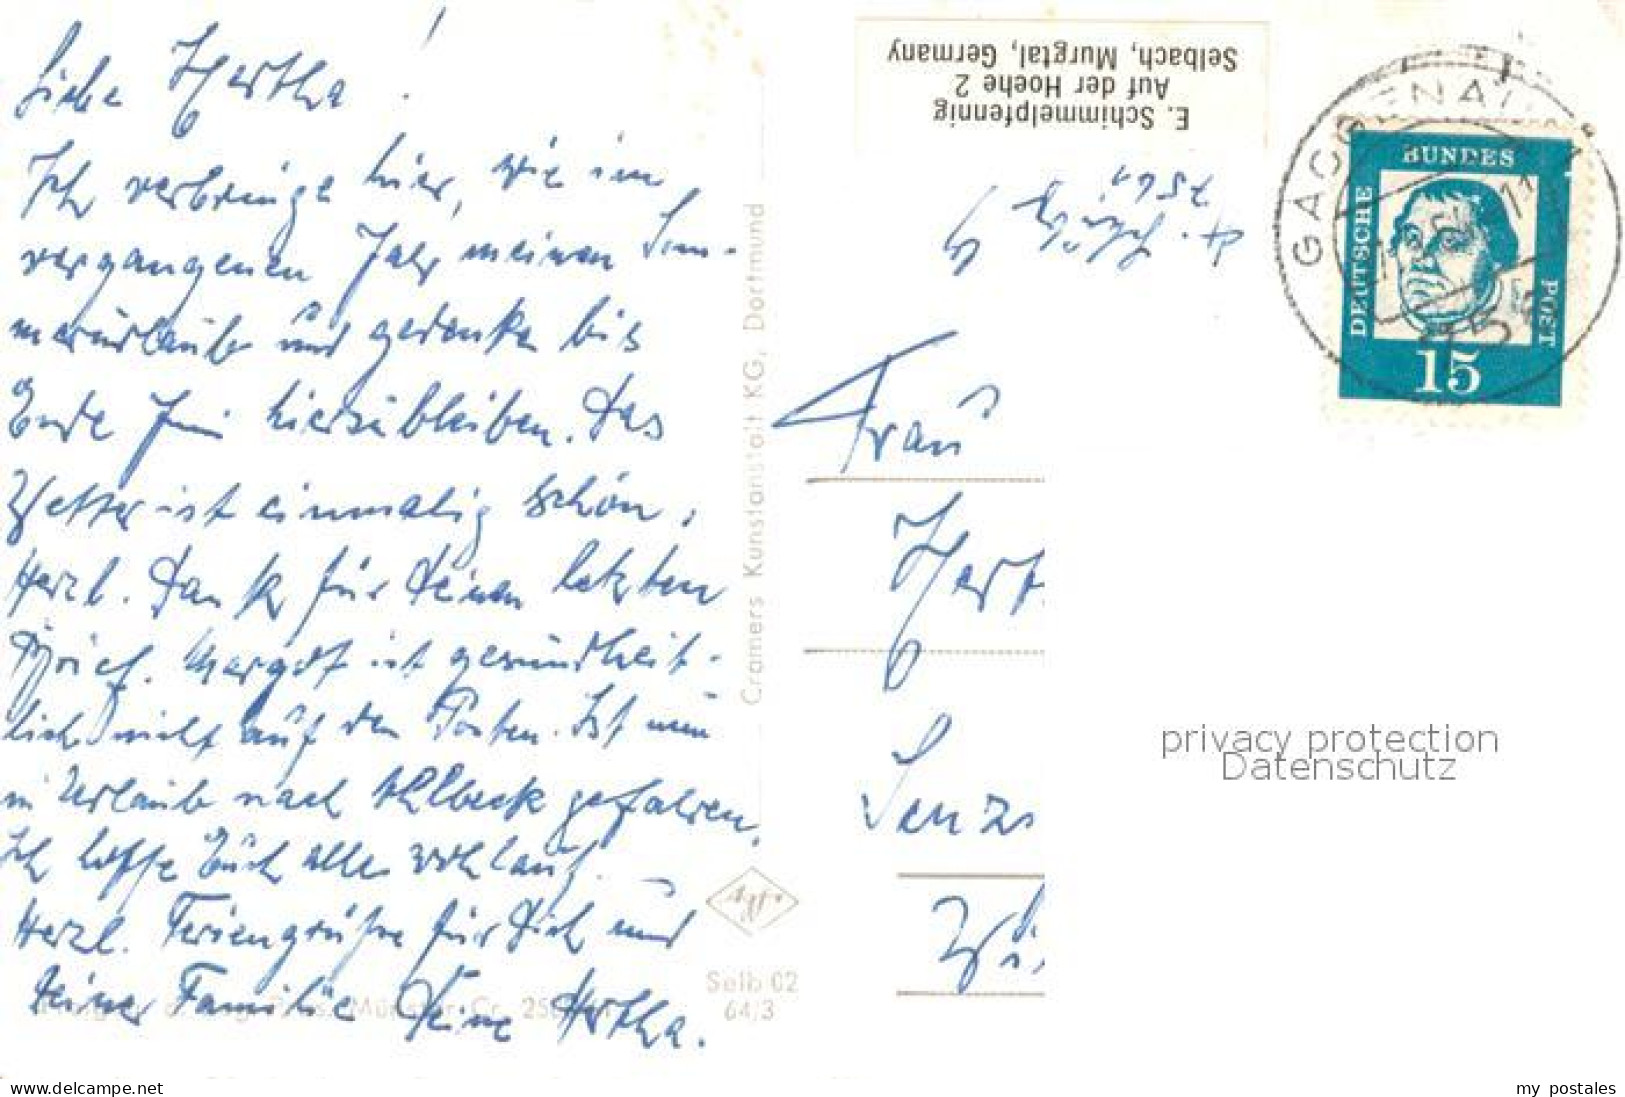 Liebe Hertha!
Ich verbringe hier, wie im
vergangenen Jahr meinen Som-
merurlaub und gedenke bis
Ende Juni hierzubleiben. Das
Wetter ist einmalig schön,
Herzl. Dank für Deinen letzten
Brief. Margot ist gesundheit-
lich nicht auf dem Posten. Ist nun
in Urlaub nach Ahlbeck gefahren,
Ich hoffe Euch alle wohlauf.
Herzl. Feriengrüße für Dich und
Deiner Familie Deine Hertha.
Cramers Kunstanstalt KG, Dortmund
Selb 02
64/3
E. Schimmelpfennig
Auf der Hoehe 2
Selbach, Murgtal, Germany
7561
DEUTSCHE
BUNDES
POST
15
Frau
Hert
privacy protection
Datenschutz
www.delcampe.net
my_postales